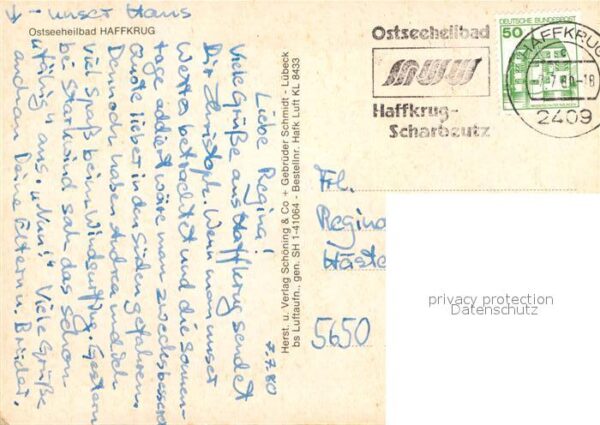 ↓ - unser Haus
Ostseeheilbad HAFFKRUG
7.7.80
Liebe Regina!
Viele Grüße aus Haffkrug sendet
Dir Christoph. Wenn man unser
Wetter betrachtet und die Sonnen-
tage addiert wäre man zwecks besserer
Quote lieber in den Süden gefahren.
Dennoch haben Andrea und ich
viel Spaß beim Windsurfing. Gestern
bei Starkwind sah das schon
ulkig aus. Nun! Viele Grüße
auch an Deine Eltern u. Brüder.
Herst. u. Verlag Schöning & Co + Gebrüder Schmidt - Lübeck
bs Luftaufn., gen. SH 1-41064 - Bestellnr. Hafk Luft KL 8433
Ostseeheilbad
Haffkrug-
Scharbeutz
DEUTSCHE BUNDESPOST
50
HAFFKRUG
7.80-18
2409
Frl.
Regina
Häste
5650
privacy protection
Datenschutz